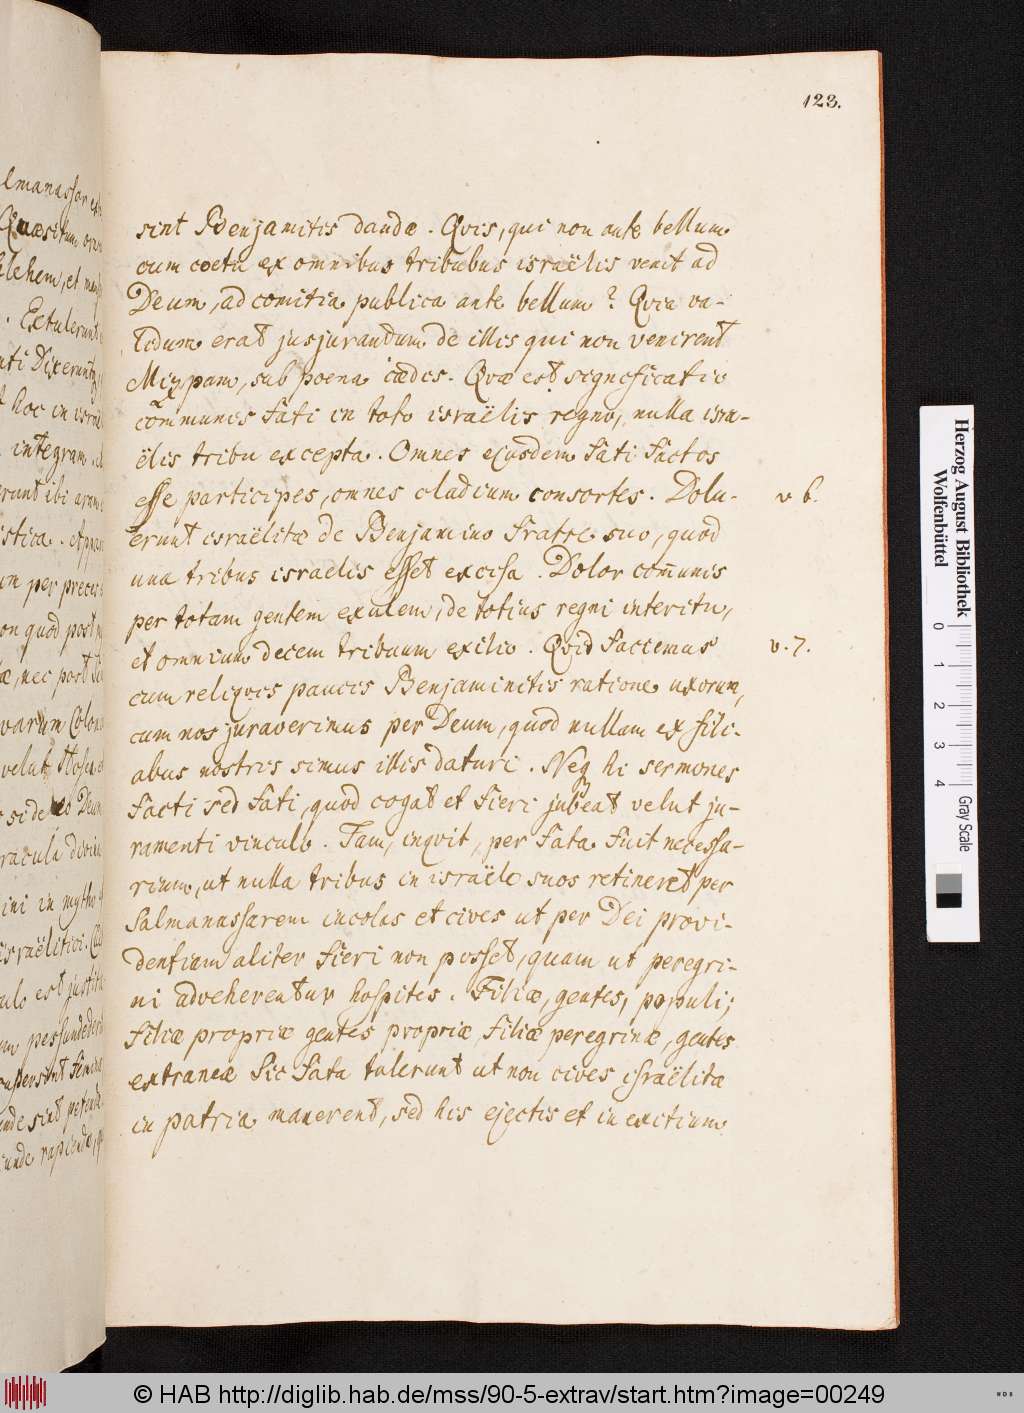 123.
sint Benjamitis dandæ. Qvis, qui non ante bellum
cum coetu ex omnibus tribubus israëlis venit ad
Deum, ad comitia publica ante bellum? Qvia va-
lidum erat jusjurandum de illis qui non venirent
Mizpam, sub poena cædis. Qvæ est significatio
com̄unis fati in toto israëlis regno, nulla isra-
ëlis tribu excepta. Omnes ejusdem fati factos
esse participes, omnes cladium consortes. Dolu-
v 6.
erunt israëlitæ de Benjamino fratre suo, quod
una tribus israelis esset excisa. Dolor com̄unis
per totam gentem exulem, de totius regni interitu,
et omnium decem tribuum exilio. Qvid faciemus
v. 7.
cum reliqvis paucis Benjaminitis ratione uxorum,
cum nos juraverimus per Deum, quod nullam ex fili-
abus nostris simus illis daturi. Neq hi sermones
facti sed fati, quod cogat et fieri jubeat velut ju-
ramenti vinculo. Tam, inqvit, per fata fuit necessa-
rium, ut nulla tribus in israële suos retineret per
Salmanassarem incolas et cives ut per Dei provi-
dentiam aliter fieri non posset, quam ut peregri-
ni adveherentur hospites. Filiæ, gentes, populi;
filiæ propriæ gentes propriæ, filiæ peregrinæ, gentes
extraneæ Sic fata tulerunt ut non cives israëlitæ
in patria manerent, sed his ejectis et in exitium
Herzog August Bibliothek
Wolfenbüttel
0 1 2 3 4 Gray Scale
© HAB http://diglib.hab.de/mss/90-5-extrav/start.htm?image=00249